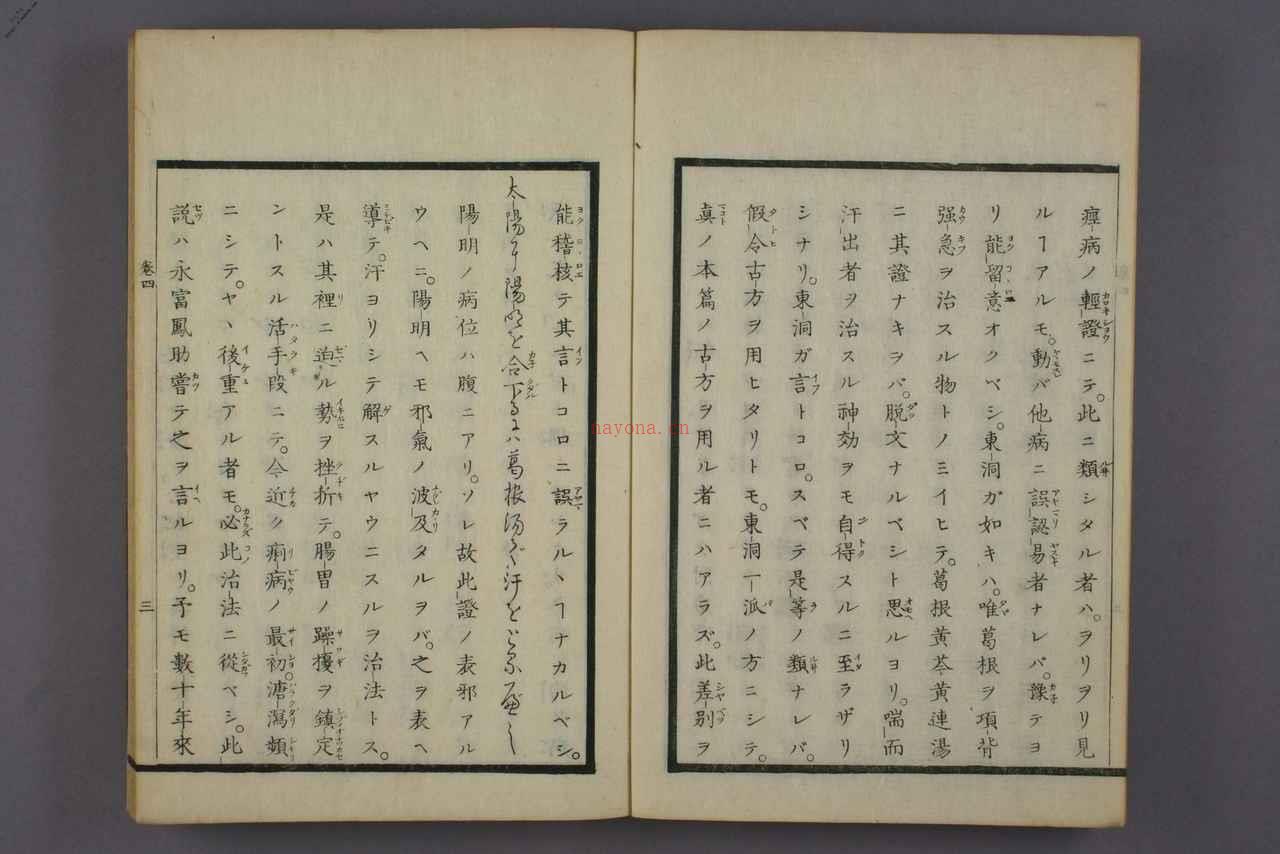 痙病ノ輕證ニテ。此ニ類シタル者ハ。ヲリヲリ見
ルヿアルモ。動バ他病ニ誤認易者ナレバ。豫テヨ
リ能留意オクベシ。東洞ガ如キハ。唯葛根ヲ項背
强急ヲ治スル物トノミイヒテ。葛根黄芩黄連湯
ニ其證ナキヲバ。脱文ナルベシト思ルヨリ。喘而
汗出者ヲ治スル神効ヲモ自得スルニ至ラザリ
シナリ。東洞ガ言トコロ。スベテ是等ノ類ナレバ。
假令古方ヲ用ヒタリトモ。東洞一派ノ方ニシテ。
眞ノ本篇ノ古方ヲ用ル者ニハアラズ。此差別ヲ
能稽核テ其言トコロニ誤ラルヽヿナカルベシ。
太陽と陽明と合下るには葛根湯で汗をとるべし
陽明ノ病位ハ腹ニアリ。ソレ故此證ノ表邪アル
ウヘニ。陽明ヘモ邪氣ノ波及タルヲバ。之ヲ表ヘ
導テ。汗ヨリシテ解スルヤウニスルヲ治法トス。
是ハ其裡ニ迫ル勢ヲ挫折テ。腸胃ノ躁擾ヲ鎮定
ントスル活手段ニテ。今近ク痢病ノ最初。溏瀉頻
ニシテ。ヤヽ後重アル者モ。必此治法ニ從ベシ。此
説ハ永富鳳助嘗テ之ヲ言ルヨリ。予モ數十年來
卷四
三
nayona.cn